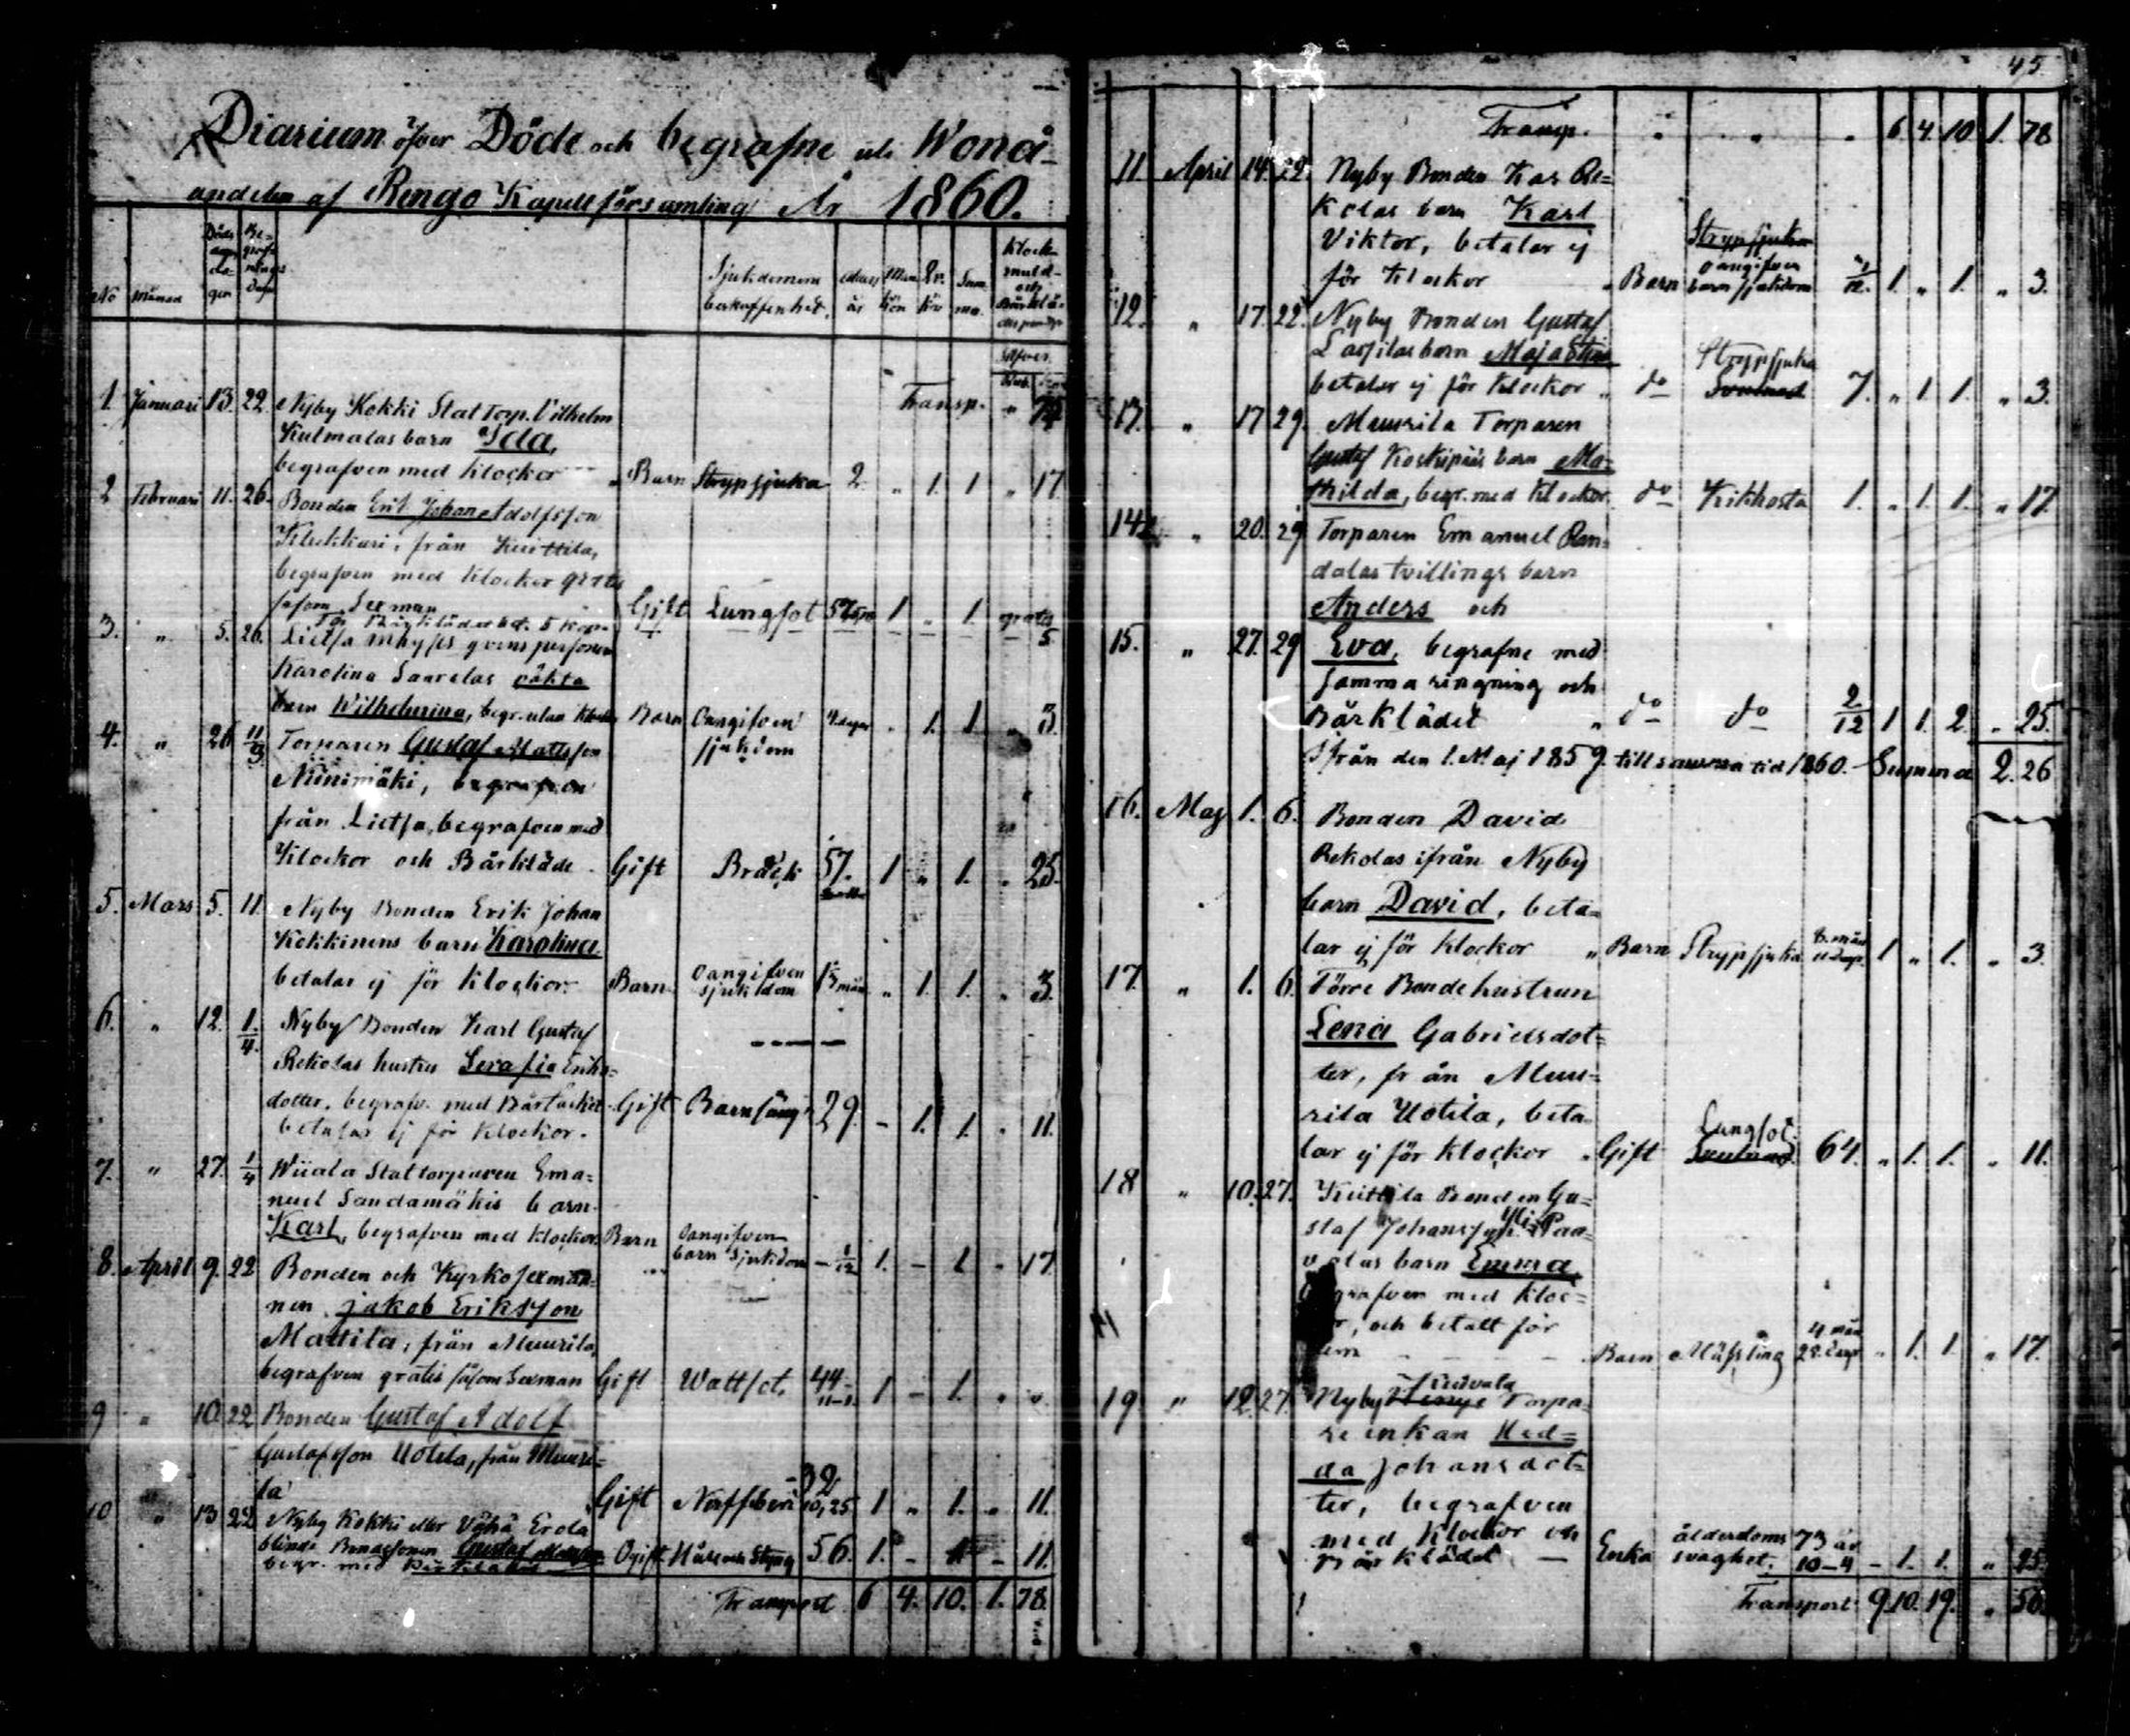 Diarium öfver Döde och begrafne uti Wonå-
andelen af Rengo Kapellförsamling År 1860.
No Månad Döds Be-
Sjukdomens Man Qv. Sum
beskaffenhet. år kön kön ma.
Klock
och
Transp. „ 74
1 Januari 13. 22 Nyby Kokki Stat Torp. Vilhelm
Kulmalas barn Ida,
begrafven med klockor „ Barn Strypsjuka 2 „ 1. 1 „ 17
2 Februari 11. 26. Bonden Erik Johan Adolfsson
Klukkari, från Kuittila,
begrafven med klockor gratis
såsom Sexman Gift Lungsot 57 1 „ 1 gratis
För Bårklädet bet. 5 kop. 5
3. „ 5. 26. Lietsa qvinspersonen
Karolina Saarelas oäkta
barn Wilhelmina, begr. utan klockor Barn Oangifven 1. 1. „ 3
sjukdom
4. „ 26 11/3 Torparen Gustaf Mattsson
Niinimäki, begrafven
från Lietsa, begrafven med
Klockor och Bårkläde Gift Bråck 57. 1 „ 1. „ 25.
5. Mars 5. 11. Nyby Bonden Erik Johan
Kokkinens barn Karolina
betalar ej för klockor. Barn Oangifven sjukdom mån „ 1. 1. „ 3.
6. „ 12. 1./4. Nyby Bonden Karl Gustaf
Rekolas hustru Serafia Eriks-
dotter, begrafv. med Bårklädet Gift Barnsäng 29. – 1. 1. „ 11.
betalar ej för klockor.
7. „ 27. 1/4 Wiiala Stattorparen Ema-
nuel Sandamäkis barn
Karl, begrafven med klockor. Barn Oangifven barn sjukdom 1/12 1. – 1 „ 17
8. April 9. 22 Bonden och Kyrkosexman-
nen Jakob Eriksson
Mattila, från Muurila,
begrafven gratis såsom Sexman Gift Wattsot. 44 1 – 1. „ „
9 „ 10. 22 Bonden Gustaf Adolf
Gustafsson Uotila, från Muuri-
la Gift Nerffeber 32 10,25 1 „ 1. „ 11.
10 „ 13 22 Nyby Kokki eller Vähä Erola
blinde Bondesonen Gustaf
begr. med Bårklädet Ogift Håll och Styng 56. 1. – 1 – 11.
Transport 6 4. 10. 1. 78.
45
Transp. „ „ „ 6. 4. 10 1. 78
11. April 14. 22. Nyby Bonden Kar Re-
kolas barn Karl
Viktor, betalar ej Strypsjuka
för klockor „ Barn oangifven barn sjukdom 1. „ 1. „ 3.
12. „ 17. 22. Nyby Bonden Gustaf
Lassilas barn Maja Stina Strypsjuka
betalar ej för klockor „ do 7. „ 1 1. „ 3.
13. „ 17 29. Muurila Torparen
Gustaf Koskipääs barn Ma-
thilda, begr. med klockor. do Kikhosta 1. „ 1. 1. „ 17.
14. „ 20. 29 Torparen Emanuel Ran-
dalas tvillings barn
Anders och
15. „ 27. 29 Eva, begrafne med
samma ringning och
Bårklädet „ do do 2/12 1 1. 2. „ 25.
Ifrån den 1. Maj 1859 till samma tid 1860. Summa 2. 26
16. Maj 1. 6. Bonden David
Rekolas ifrån Nyby
barn David, beta-
lar ej för klockor „ Barn Strypsjuka 1 „ 1. „ 3.
17. „ 1. 6. Förre Bondehustrun
Lena Gabrielsdot-
ter, från Muu-
rila Uotila, beta- Lungsot
lar ej för klockor „ Gift 64. „ 1. 1. „ 11.
18 „ 10. 27. Kuittila Bonden Gu-
staf Johansson Yli Paa-
volas barn Emma
begrafven med kloc-
kor, och betalt för
dem . Barn Mässling 4 mån 28 dagar „ 1. 1. „ 17.
19 „ 12. 27. Nyby Torpa-
re enkan Hed-
da Johansdot-
ter, begrafven
med klockor och
Bårklädet — Enka ålderdoms svaghet. 73 år 10–4 – 1. 1. „ 25.
Transport 9. 10. 19. „ 56.